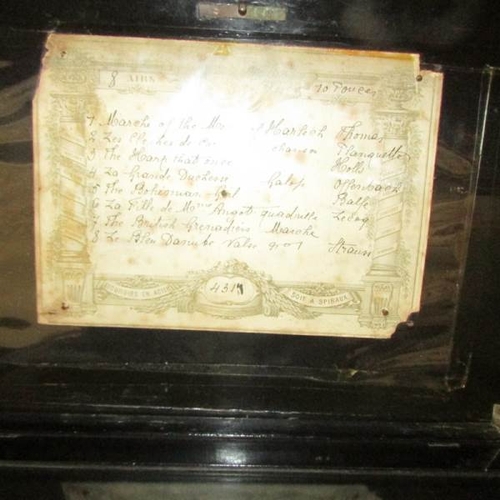 8 AIRS
10 Pouces
1 March of the Harlech Thomas
2 Les Cloches de chanson Planquette
3 The Harp that once Holls
4 La Grande Duchesse Galop Offenbach
5 The Bohemian Girl Balfe
6 La Fille de Mme Angot quadrille Lecoq
7 The British Grenadiers Marche
8 Le Bleu Danube Valse No 1 Strauss
4311